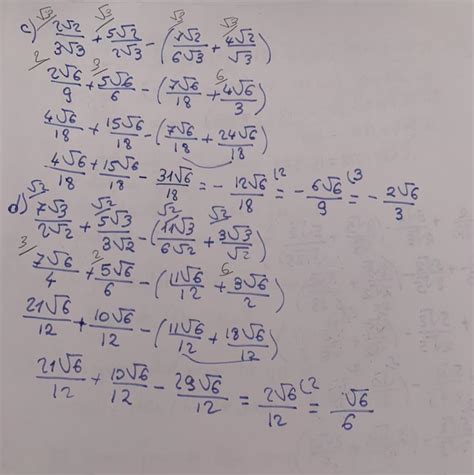 √3 √3 √3 √3
c) 2√2/3√3 + 5√2/2√3 - (7√2/6√3 + 4√2/√3)
2 3 6
2√6/9 + 5√6/6 - (7√6/18 + 4√6/3)
4√6/18 + 15√6/18 - (7√6/18 + 24√6/18)
4√6/18 + 15√6/18 - 31√6/18 = - 12√6/18 (2 = - 6√6/9 (3 = - 2√6/3
√3 √2 √2 √3
d) 7√3/2√2 + 5√3/3√2 - (11√3/6√2 + 3√3/√2)
3 2 6
7√6/4 + 5√6/6 - (11√6/12 + 3√6/2)
21√6/12 + 10√6/12 - (11√6/12 + 18√6/12)
21√6/12 + 10√6/12 - 29√6/12 = 2√6/12 (2 = √6/6